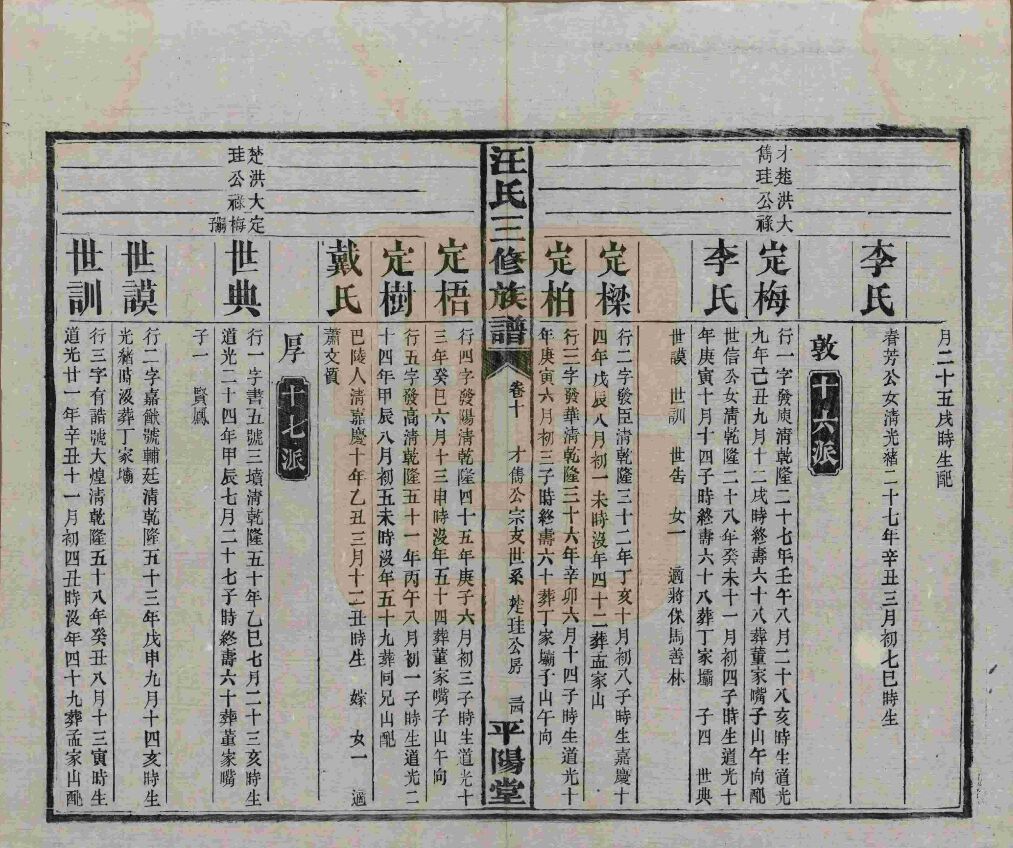 月二十五戌時生配
李氏
春芳公女清光緒二十七年辛丑三月初七巳時生
敦 十六派
才楚洪大
雋珪公祿
定梅
行一字發庾清乾隆二十七年壬午八月二十八亥時生道光
九年己丑九月十二戌時終壽六十八葬董家嘴子山午向配
李氏
世信公女清乾隆二十八年癸未十一月初四子時生道光十
年庚寅十月十四子時終壽六十八葬丁家壩 子四 世典
世謨 世訓 世告 女一 適蔣保馬善林
定樑
行二字發臣清乾隆三十二年丁亥十月初八子時生嘉慶十
四年戊辰八月初一未時沒年四十二葬孟家山
定柏
行三字發華清乾隆三十六年辛卯六月十四子時生道光十
年庚寅六月初三子時終壽六十葬丁家壩子山午向
汪氏三修族譜
卷十 才雋公宗支世系 楚珪公房
平陽堂
定梧
行四字發陽清乾隆四十五年庚子六月初三子時生道光十
三年癸巳六月十三申時沒年五十四葬董家嘴子山午向
定樹
行五字發高清乾隆五十一年丙午八月初一子時生道光二
十四年甲辰八月初五未時沒年五十九葬同兄山配
戴氏
巴陵人清嘉慶十年乙丑三月十二丑時生 嫁 女一 適
蕭文質
厚 十七派
楚洪大定
珪公祿梅
世典
行一字書五號三墳清乾隆五十年乙巳七月二十三亥時生
道光二十四年甲辰七月二十七子時終壽六十葬董家嘴
子一 賢鳳
世謨
行二字嘉猷號輔廷清乾隆五十三年戊申九月十四亥時生
光緒時沒葬丁家壩
世訓
行三字有誥號大煌清乾隆五十八年癸丑八月十三寅時生
道光廿一年辛丑十一月初四丑時沒年四十九葬孟家山配